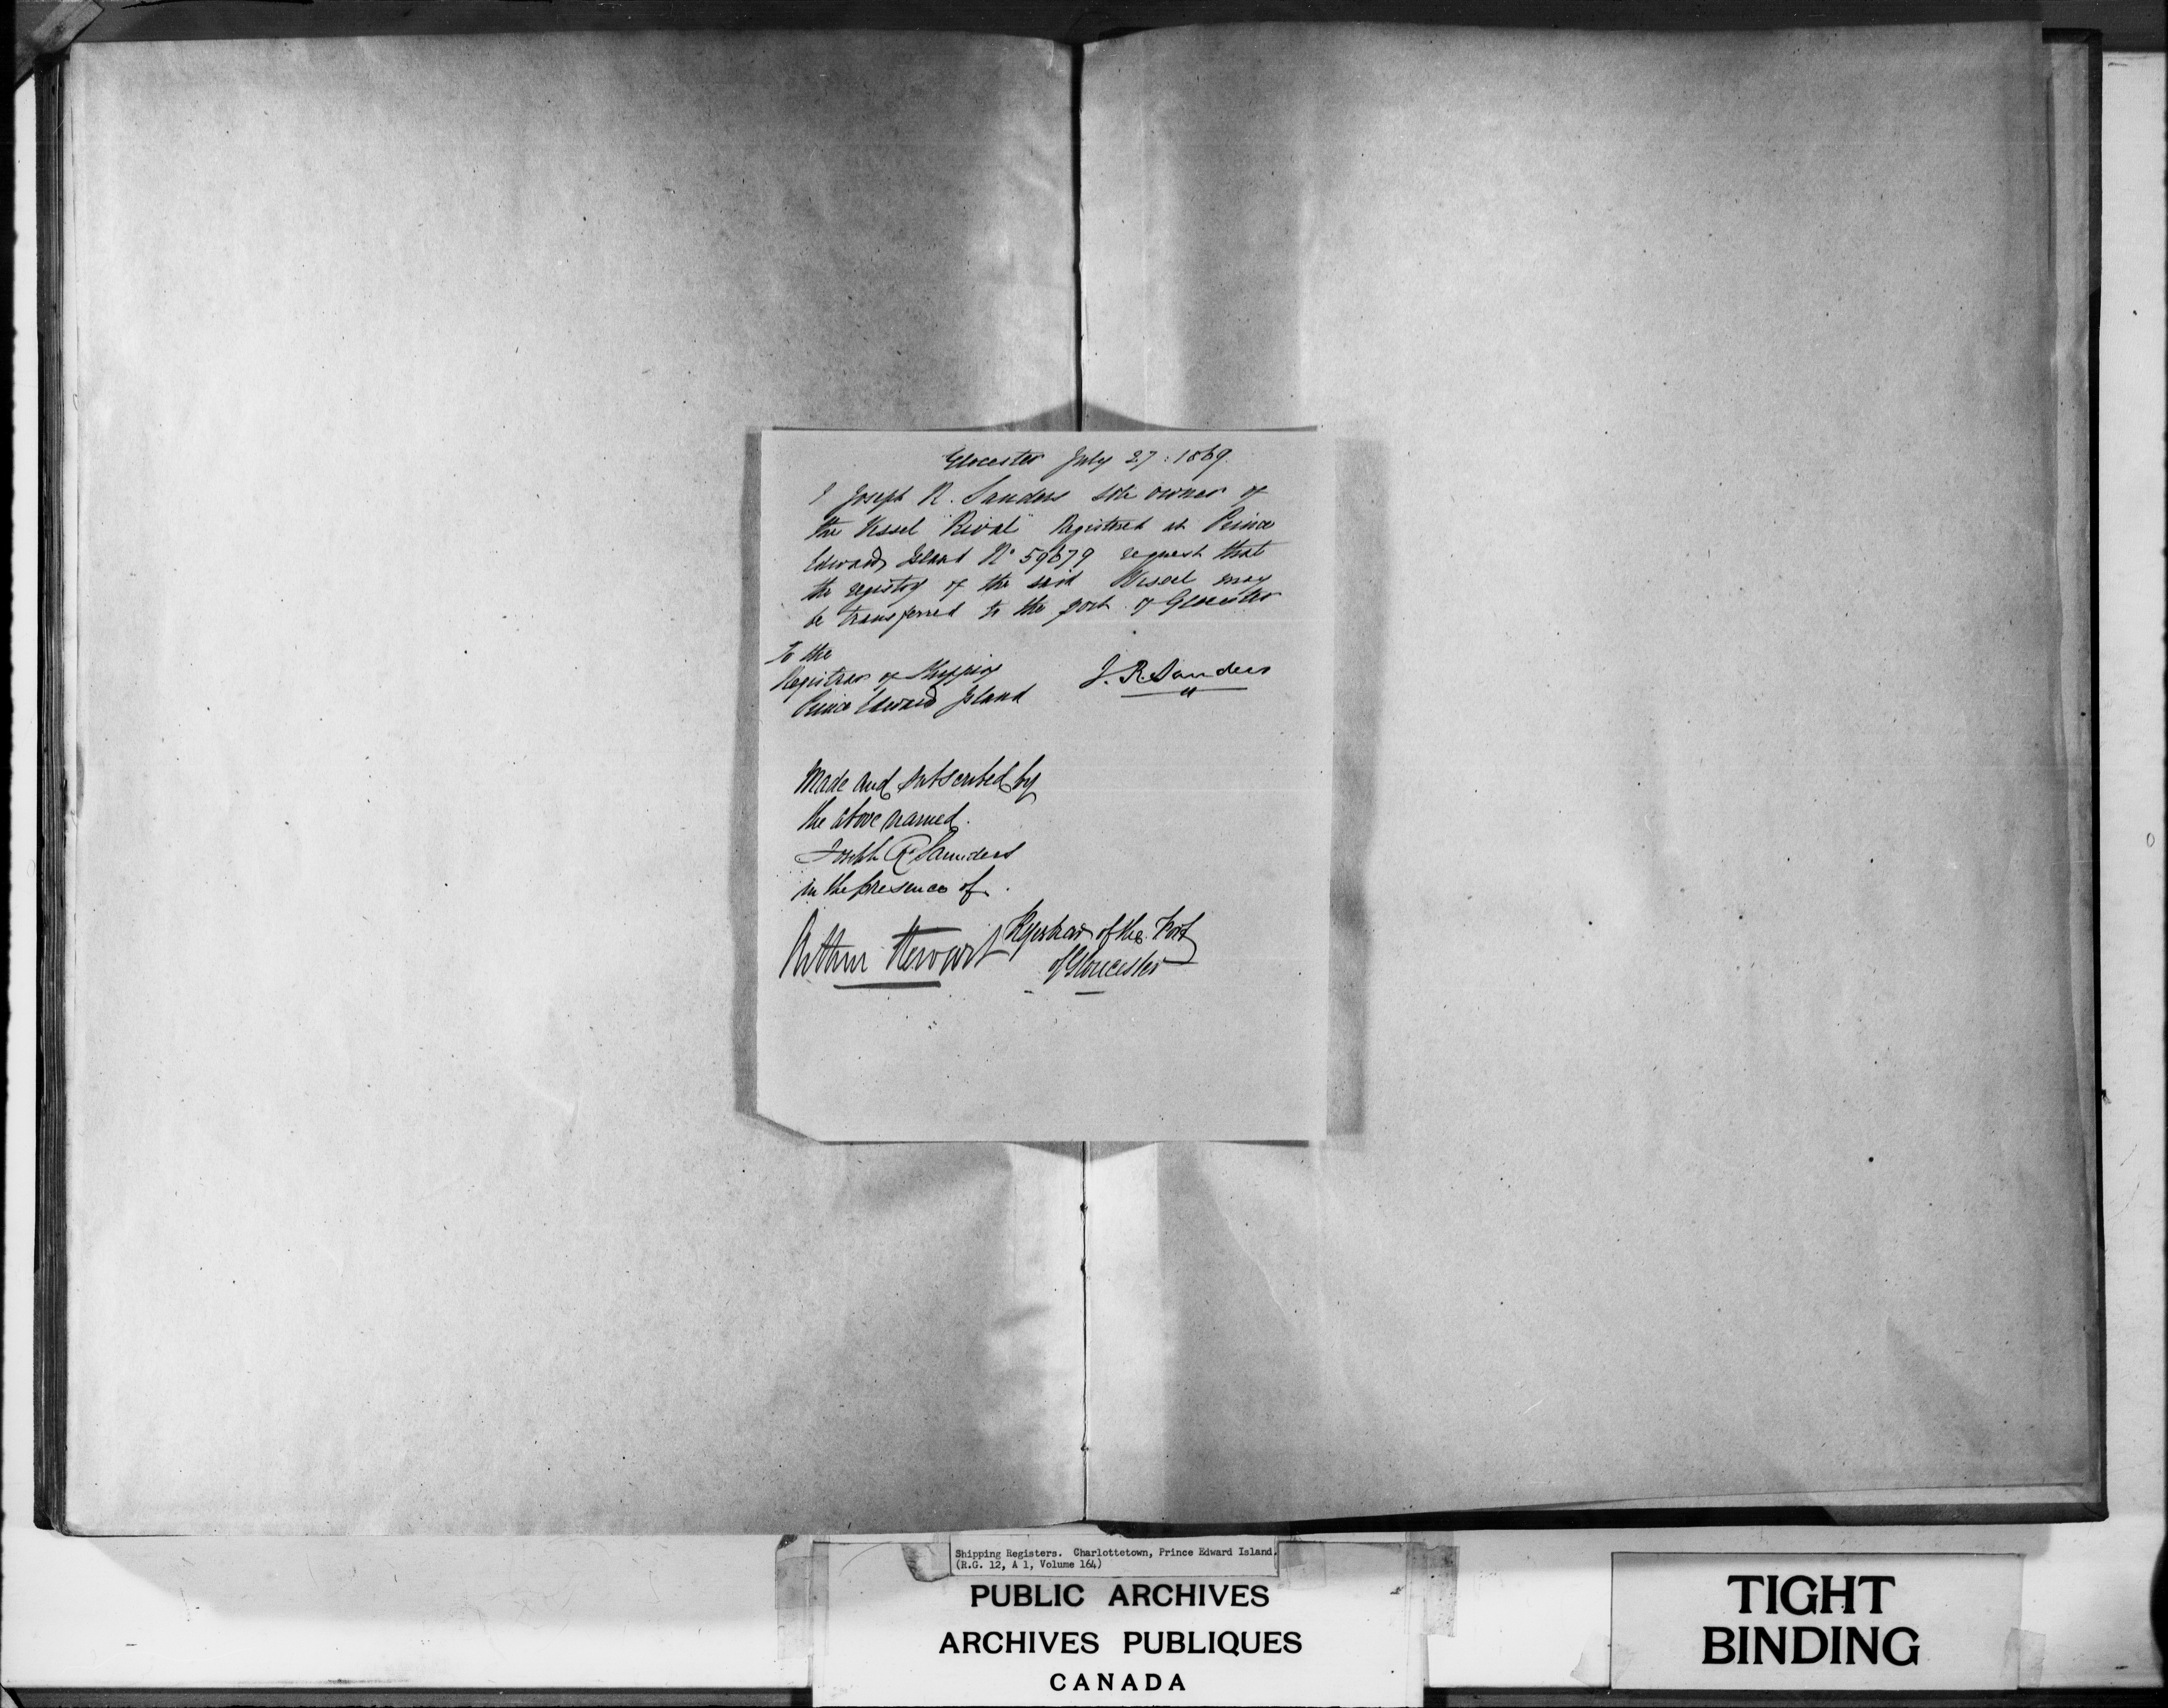 Glocester July 27: 1869.
I Joseph R. Sanders sole owner of
the Vessel "Rival" Registered at Prince
Edward Island No 59679 request that
the registry of the said Vessel may
be transferred to the port of Glocester
To the
Registrar of Shipping
Prince Edward Island
J. R. Sanders
Made and subscribed by
the above named.
Joseph R. Saunders
in the presence of.
Arthur Stewart Registrar of the Port
of Gloucester
Shipping Registers. Charlottetown, Prince Edward Island.
(R.G. 12, A 1, Volume 164)
PUBLIC ARCHIVES
ARCHIVES PUBLIQUES
CANADA
TIGHT
BINDING